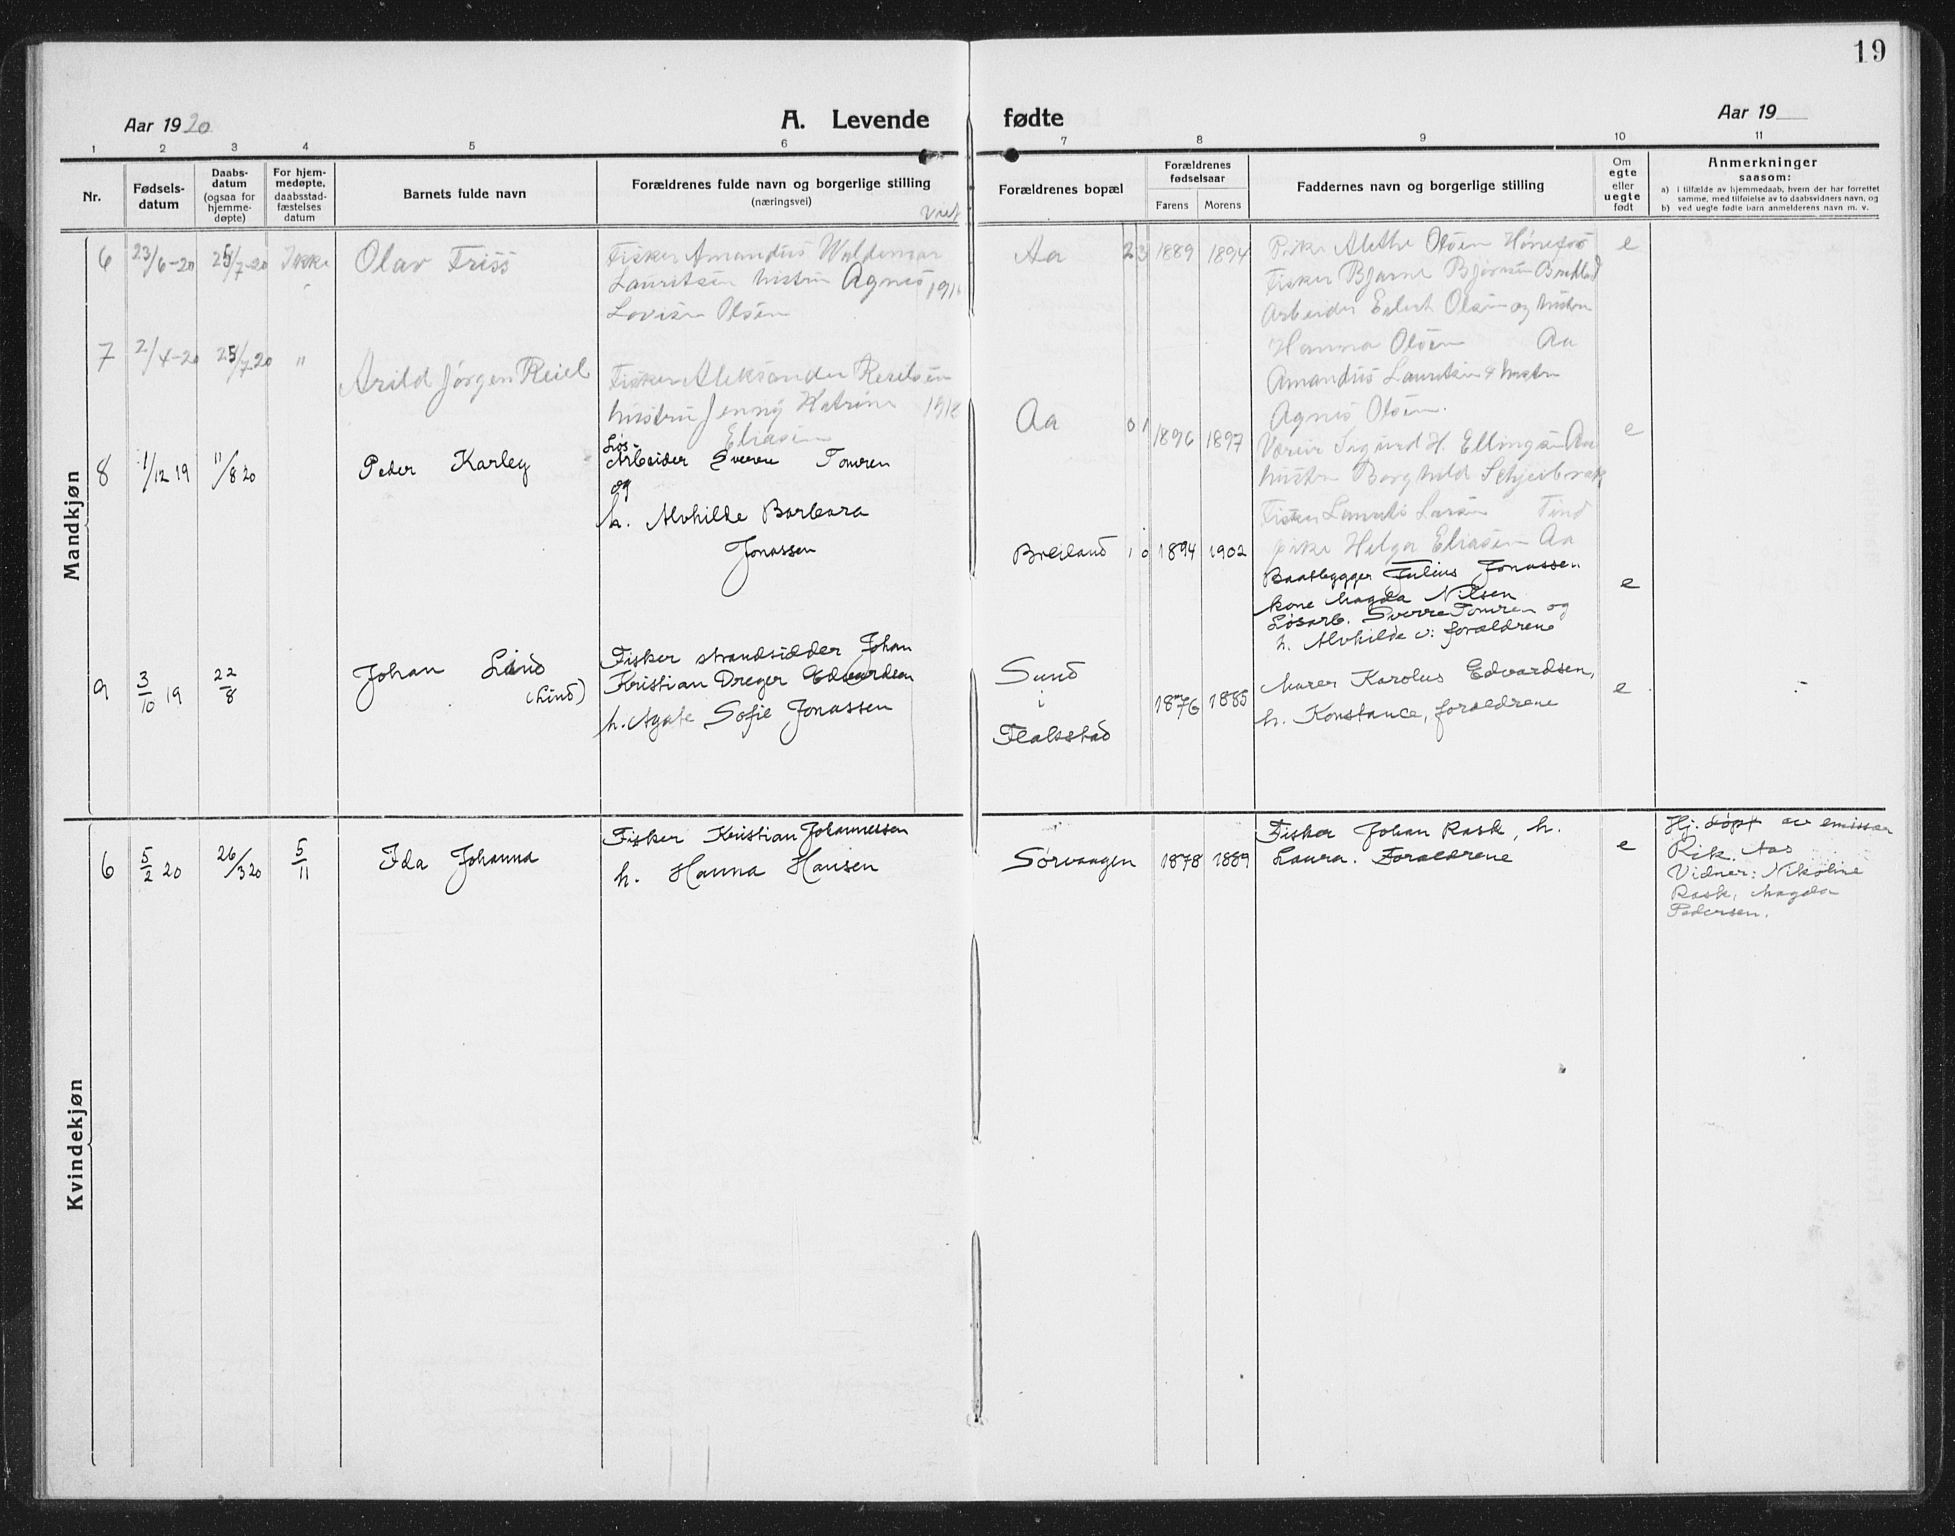 19
Aar 1920
A. Levende fødte
Aar 19
1 2 3 4 5 6 7 8 9 10 11
Nr.
Fødsels-
datum
Daabs-
datum
(ogsaa for
hjemme-
døpte)
For hjem-
medøpte,
daabsstad-
fæstelses
datum
Barnets fulde navn
Forældrenes fulde navn og borgerlige stilling
(næringsvei)
Forældrenes bopæl
Forældrenes
fødselsaar
Farens Morens
Faddernes navn og borgerlige stilling
Om
egte
eller
uegte
født
Anmerkninger
saasom:
a) i tilfælde av hjemmedaab, hvem der har forrettet
samme, med tilføielse av to daabsvidners navn, og
b) ved uegte fødte barn anmelderens navn m. v.
Mandkjøn
6 23/6-20 25/7-20 Ikke
Olav Friss
Fisker Amandus Waldemar
Lauritsen hustru Agnes
Lovise Olsen
Aa 23 1889 1894
Pike Alethe Olsen Hønefos
Fisker Bjarne
Arbeider Eilert Olsen og hustru
Hanna Olsen Aa
e
7 2/4-20 25/7.20 "
Arild Jørgen Reiel
Fisker Aleksander
hustru Jenny Katrine 1918
Eliasen
Aa 01 1896 1897
Amandus Lauritsen & hustru
Agnes Olsen.
Sigurd H. Ellingsen Aa
hustru Borghild
Fisker Laurits Larsen Tind
Pike Helga Eliasen Aa
e
8 1/12 19 11/8 20
Peder Karley
Løs-
Arbeider Sverre Tomren
og
h. Alvhilde Barbara
Jonassen
Breiland 10 1894 1902
Baatbygger Julius Jonassen
kone Magda Nilsen
Løsarb. Sverre Tomren og
h. Alvhilde v: forældrene
e
9 3/10 19 22/8
Johan Lind
(Lind)
Fisker strandsidder Johan
Kristian Dreyer Edvardsen
h. Agate Sofie Jonassen
Sund
i
Flakstad
1876 1885
Murer Karolus Edvardsen,
h. Konstance, forældrene
e
Kvindekjøn
6 5/2 20 26/3 20 5/11
Ida Johanna
Fisker Kristian Johannessen
h. Hanna Hansen
Sørvaagen 1878 1889
Fisker Johan Rask, h.
Laura. Forældrene
e
Hj. døpt av emissær
Rik. Aas
Vidner: Nikoline
Rask, Magda
Pedersen.